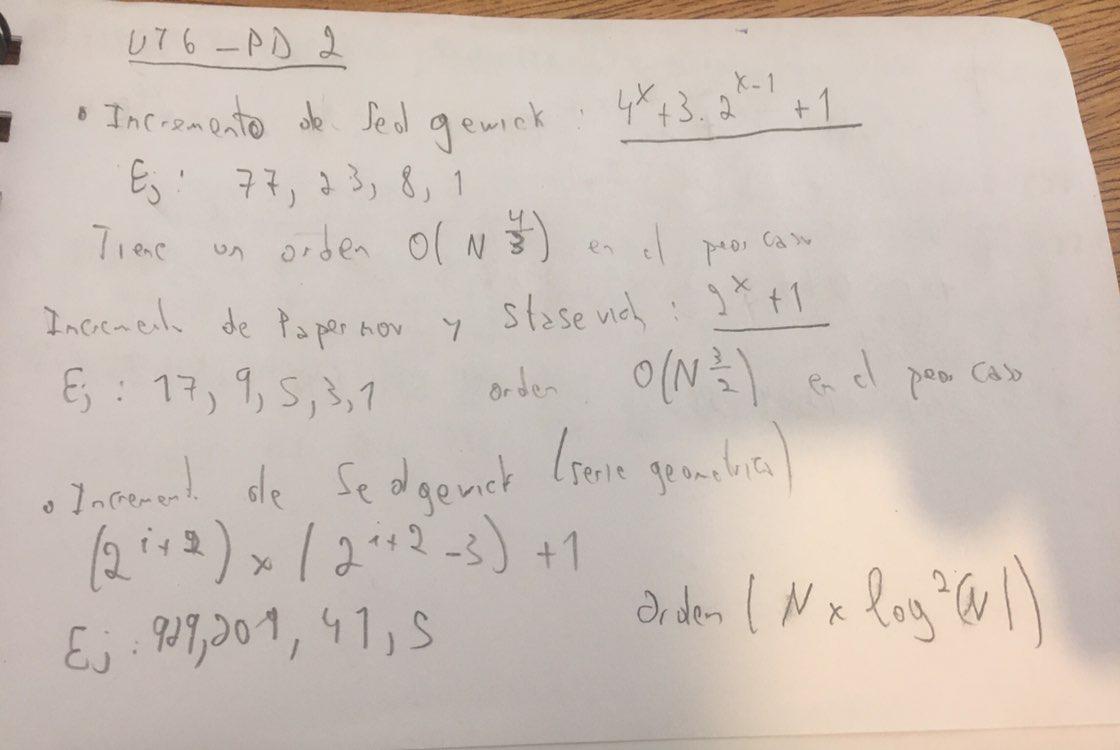 UT6 - PD 2
• Incremento de Sedgewick : 4^x + 3 . 2^(x-1) + 1
Ej : 77, 23, 8, 1
Tiene un orden O(N^(4/3)) en el peor caso
Increment de Papernov y Stasevich : 2^x + 1
Ej : 17, 9, 5, 3, 1 orden O(N^(3/2)) en el peor caso
• Increment de Sedgevick (serie geometrica)
(2^(i+2)) x (2^(i+2) - 3) + 1
Ej : 929, 209, 41, 5 orden (N x log²(N))